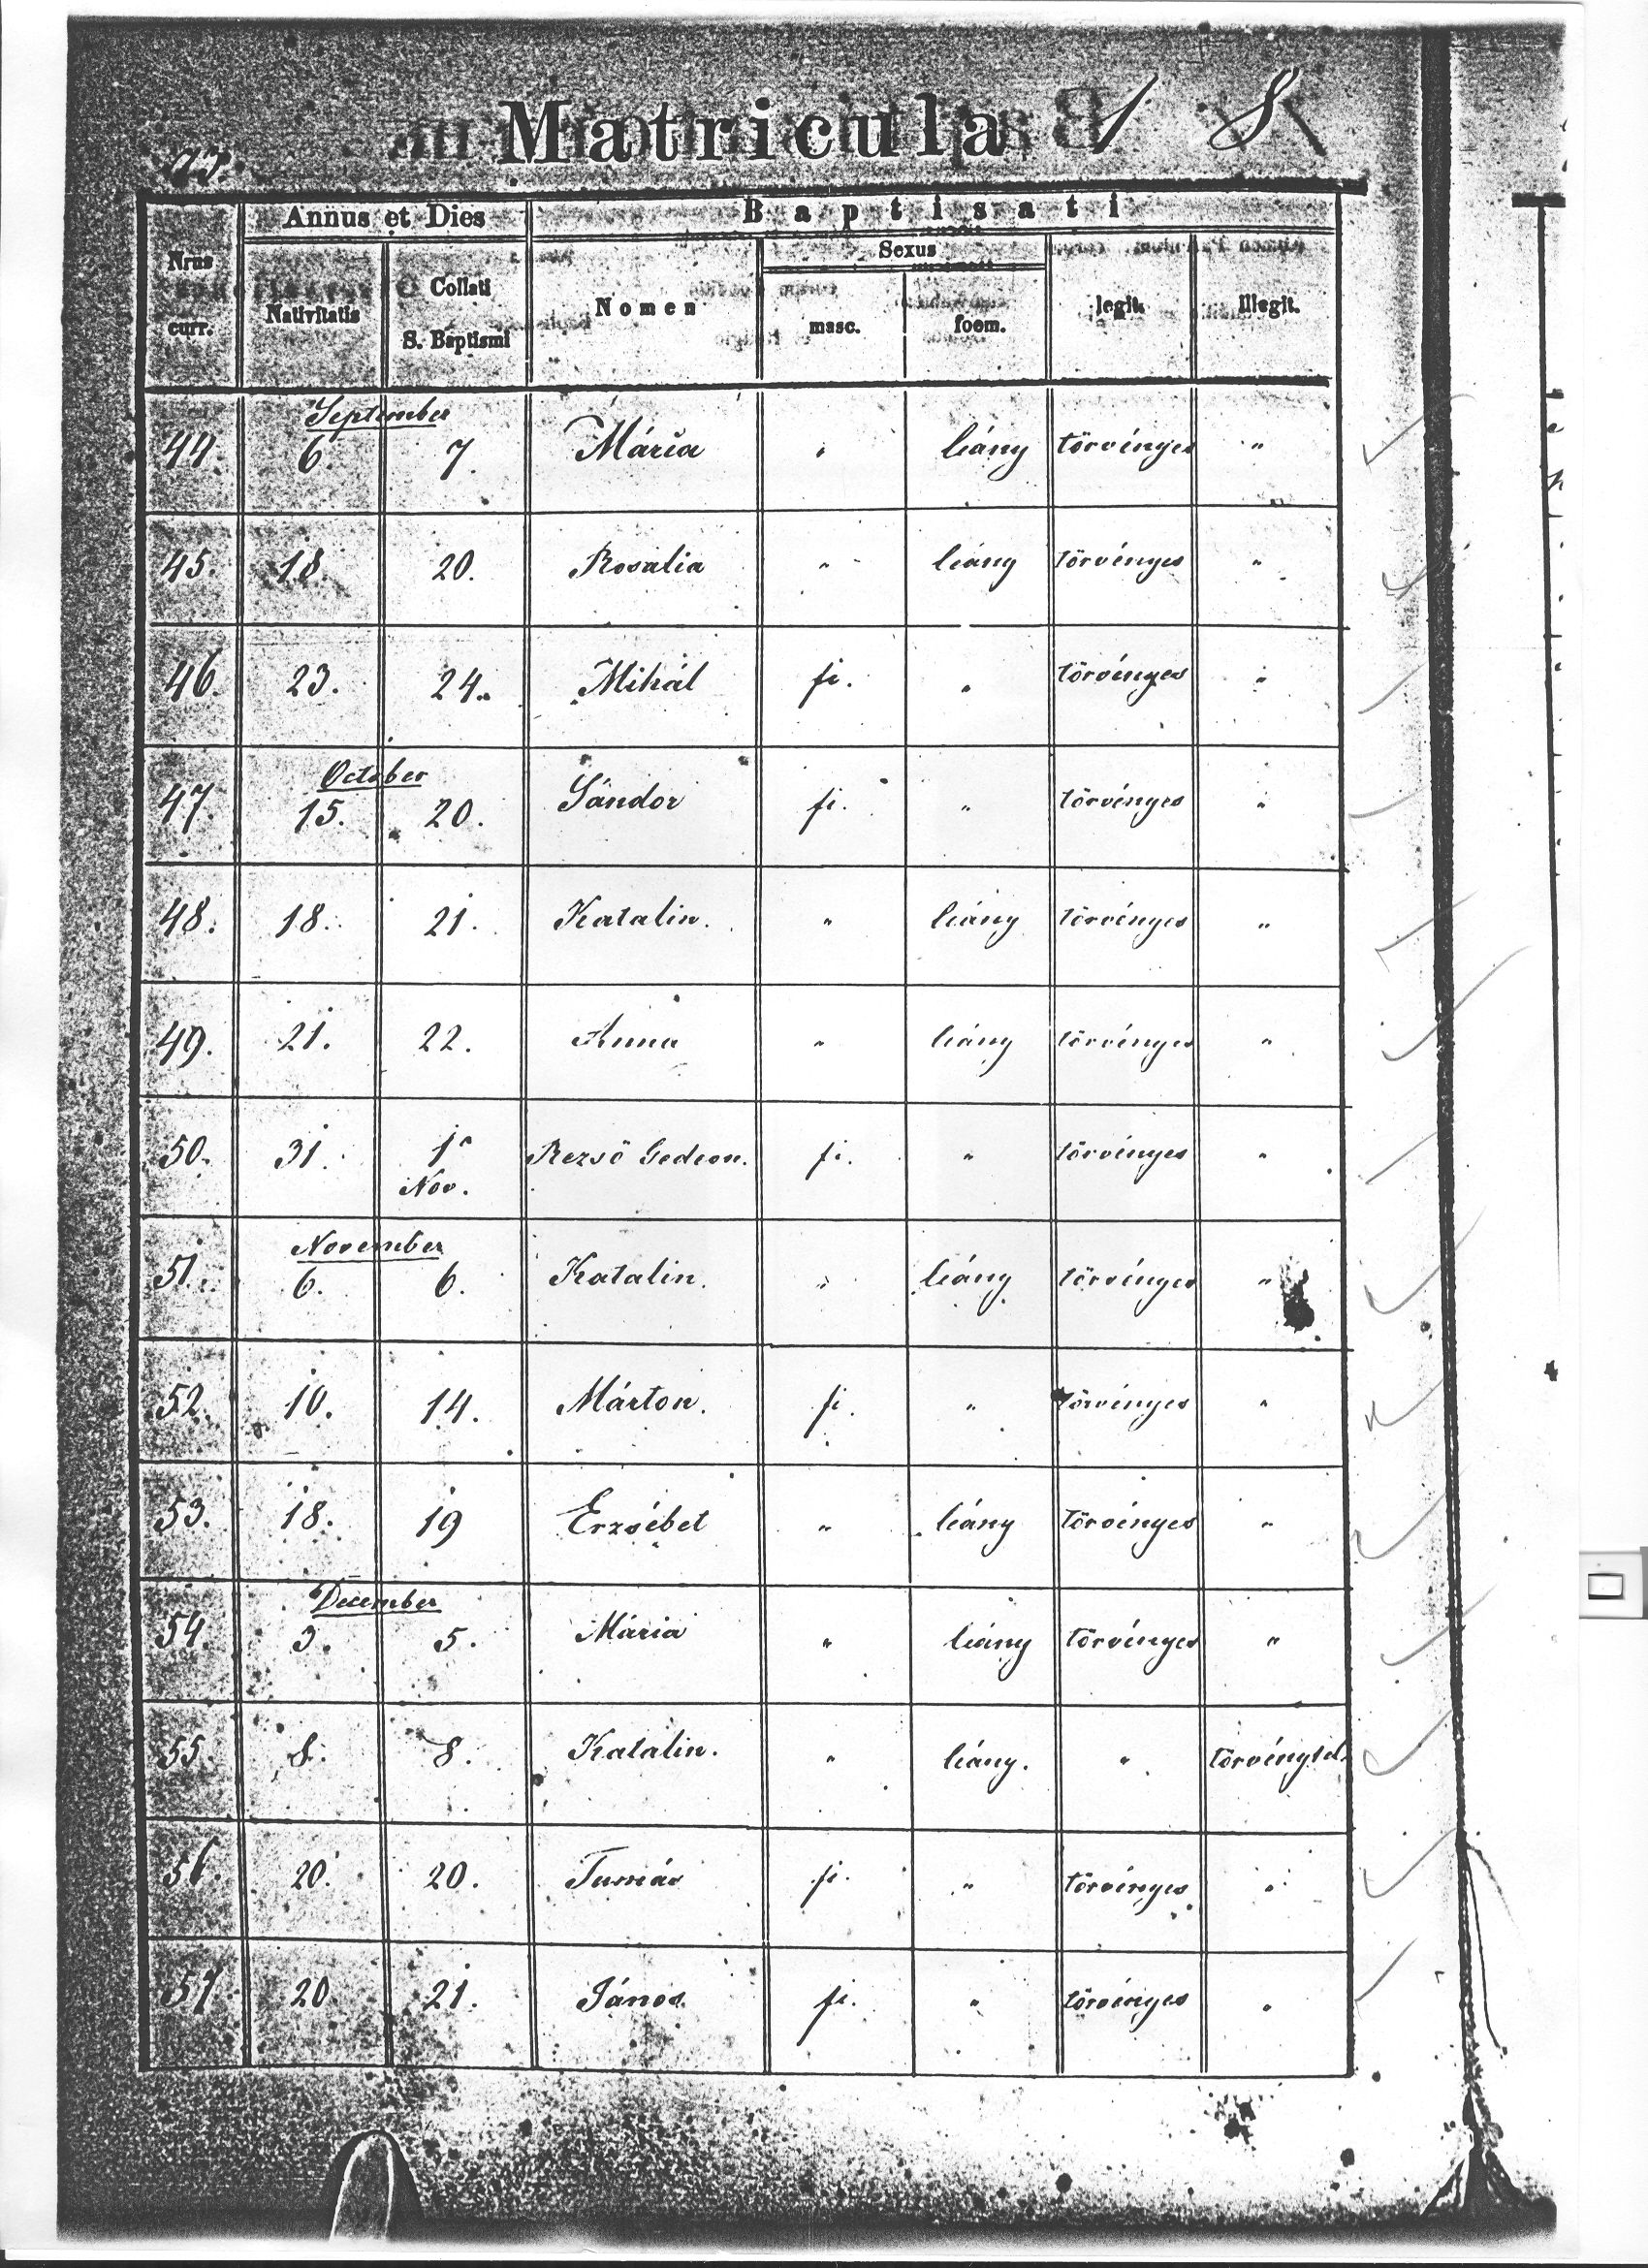 Matricula 1 8
Annus et Dies Baptisati
Nrus curr. Nativitatis Collati S. Baptismi Nomen Sexus masc. foem. legit. illegit.
September
44. 6. 7. Mária " leány törvényes "
45. 18. 20. Rosalia " leány törvényes "
46. 23. 24. Mihál fi. " törvényes "
October
47. 15. 20. Sándor fi. " törvényes "
48. 18. 21. Katalin. " leány törvényes "
49. 21. 22. Anna " leány törvényes "
50. 31. 1 Nov. Rezsö Gedeon. fi. " törvényes "
November
51. 6. 6. Katalin. " leány törvényes "
52. 10. 14. Márton. fi. " törvényes "
53. 18. 19 Erzsébet " leány törvényes "
December
54. 3. 5. Mária " leány törvényes "
55. 8. 8. Katalin. " leány. " törvénytel.
56. 20. 20. Tamás fi. " törvényes "
57. 20 21. János fi. " törvényes "